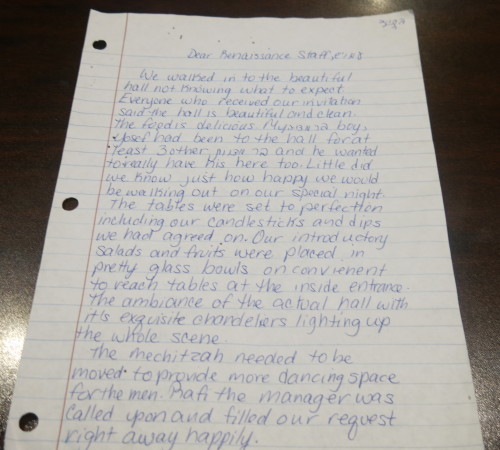 Dear Renaissance Staff,
We walked in to the beautiful
hall not knowing what to expect.
Everyone who received our invitation
said the hall is beautiful and clean.
The food is delicious. My boy,
Yosef had been to the hall for at
least 3 other and he wanted
to really have his here too. Little did
we know just how happy we would
be walking out on our special night.
The tables were set to perfection
including our candlesticks and dips
we had agreed on. Our introductory
salads and fruits were placed in
pretty glass bowls on convenent
to reach tables at the inside entrance.
The ambiance of the actual hall with
it's exquisite chandeliers lighting up
the whole scene.
The mechitzah needed to be
moved to provide more dancing space
for the men. Rafi the manager was
called upon and filled our request
right away happily.